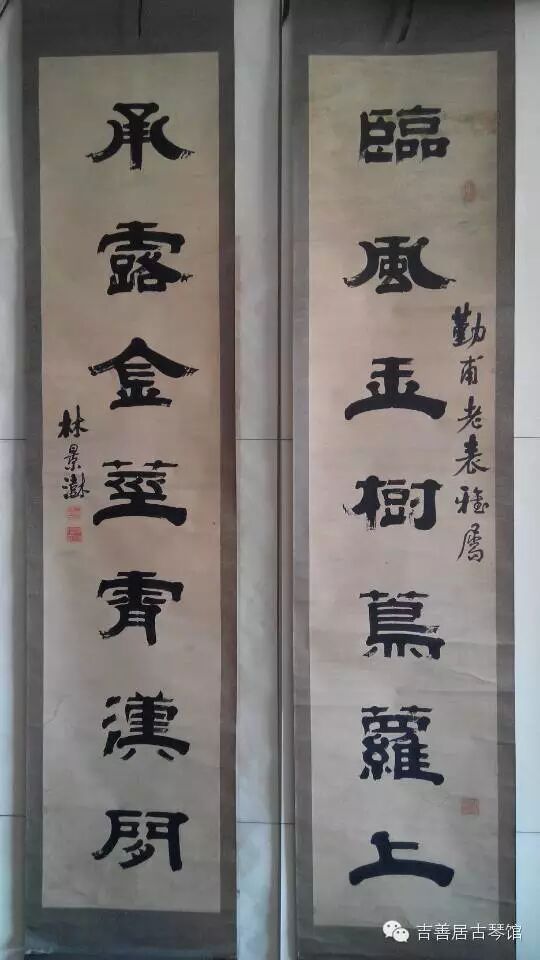 臨風玉樹蔦蘿上
勤甫老表雅屬
承露金莖霄漢閒
林景
吉善居古琴馆